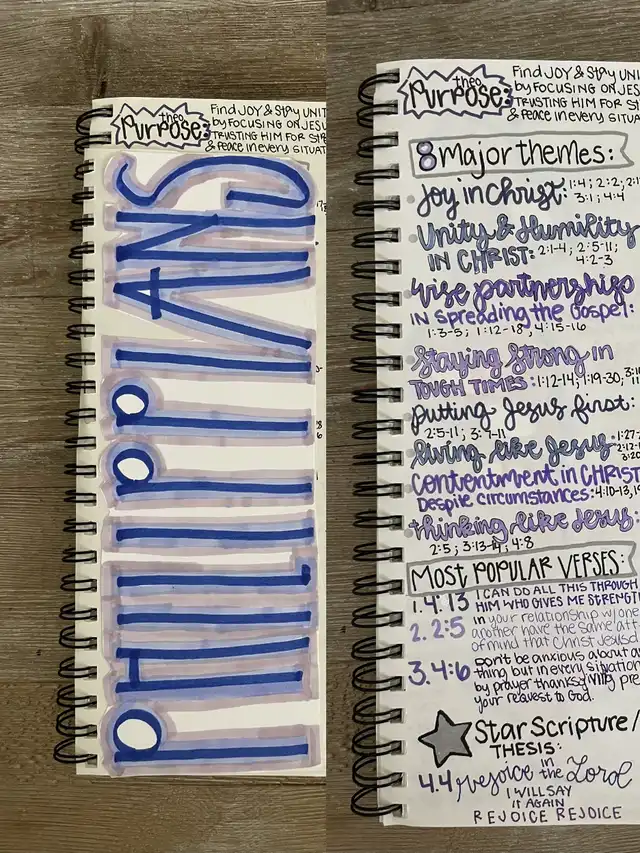 the
Purpose:
Find JOY & Stay UNIT
by FOCUSING ON JESU
TRUSTING HIM FOR STR
& Peace in every SITUAT
PHILIPPIANS
the
Purpose:
Find JOY & Stay UNI
by FOCUSING ON JES
TRUSTING HIM FOR S
& Peace in every SITUA
8 Major themes:
Joy in Christ: 1:4; 2:2;
3:1; 4:4
Unity & Humility
IN CHRIST: 2:1-4; 2:5-11;
4:2-3
Wise partnerships
IN Spreading the Gospel:
1:3-5; 1:12-18; 4:15-16
Staying Strong in
TOUGH TIMES: 1:12-14; 1:19-30;
putting Jesus first:
2:5-11; 3:7-11
living like Jesus:
contentment in CHRIST
Despite circumstances: 4:10-13,
thinking like Jesus:
2:5; 3:13-14; 4:8
MOST POPULAR VERSES:
1. 4:13 I CAN DO ALL THIS THROUGH
HIM WHO GIVES ME STRENGT
2. 2:5 in your relationship w/ one
another have the same att
of mind that Christ Jesus
3. 4:6 Don't be anxious about a
thing but in every situation
by prayer thanksgiving pre
your request to God.
Star Scripture/
THESIS:
4:4 rejoice in the Lord
I WILL SAY
IT AGAIN
REJOICE REJOICE